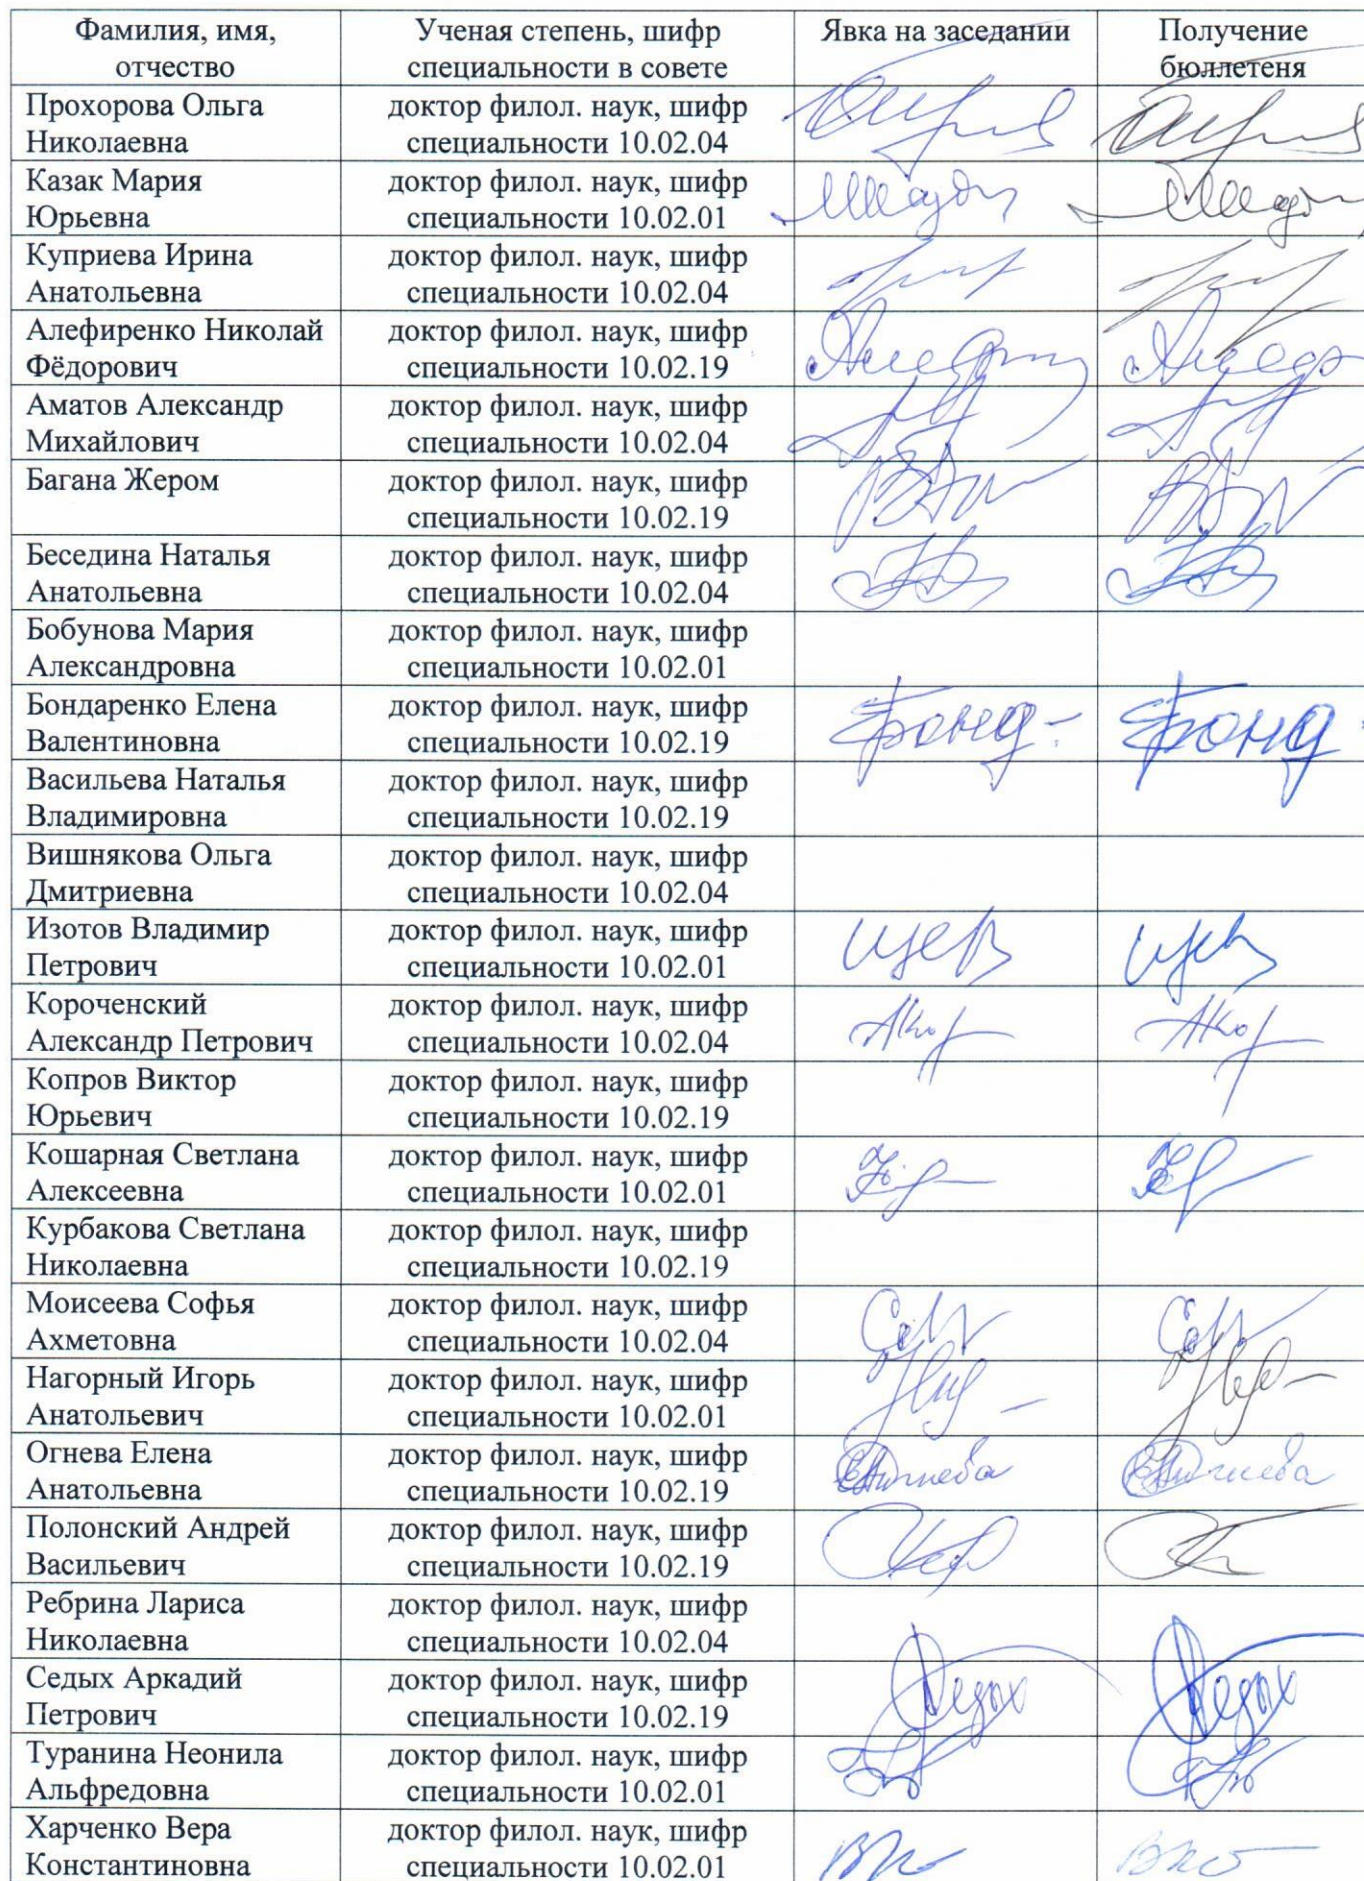 Фамилия, имя,
отчество
Ученая степень, шифр
специальности в совете
Явка на заседании
Получение
бюллетеня
Прохорова Ольга
Николаевна
доктор филол. наук, шифр
специальности 10.02.04
Казак Мария
Юрьевна
доктор филол. наук, шифр
специальности 10.02.01
Куприева Ирина
Анатольевна
доктор филол. наук, шифр
специальности 10.02.04
Алефиренко Николай
Фёдорович
доктор филол. наук, шифр
специальности 10.02.19
Аматов Александр
Михайлович
доктор филол. наук, шифр
специальности 10.02.04
Багана Жером
доктор филол. наук, шифр
специальности 10.02.19
Беседина Наталья
Анатольевна
доктор филол. наук, шифр
специальности 10.02.04
Бобунова Мария
Александровна
доктор филол. наук, шифр
специальности 10.02.01
Бондаренко Елена
Валентиновна
доктор филол. наук, шифр
специальности 10.02.19
Васильева Наталья
Владимировна
доктор филол. наук, шифр
специальности 10.02.19
Вишнякова Ольга
Дмитриевна
доктор филол. наук, шифр
специальности 10.02.04
Изотов Владимир
Петрович
доктор филол. наук, шифр
специальности 10.02.01
Короченский
Александр Петрович
доктор филол. наук, шифр
специальности 10.02.04
Копров Виктор
Юрьевич
доктор филол. наук, шифр
специальности 10.02.19
Кошарная Светлана
Алексеевна
доктор филол. наук, шифр
специальности 10.02.01
Курбакова Светлана
Николаевна
доктор филол. наук, шифр
специальности 10.02.19
Моисеева Софья
Ахметовна
доктор филол. наук, шифр
специальности 10.02.04
Нагорный Игорь
Анатольевич
доктор филол. наук, шифр
специальности 10.02.01
Огнева Елена
Анатольевна
доктор филол. наук, шифр
специальности 10.02.19
Полонский Андрей
Васильевич
доктор филол. наук, шифр
специальности 10.02.19
Ребрина Лариса
Николаевна
доктор филол. наук, шифр
специальности 10.02.04
Седых Аркадий
Петрович
доктор филол. наук, шифр
специальности 10.02.19
Туранина Неонила
Альфредовна
доктор филол. наук, шифр
специальности 10.02.01
Харченко Вера
Константиновна
доктор филол. наук, шифр
специальности 10.02.01